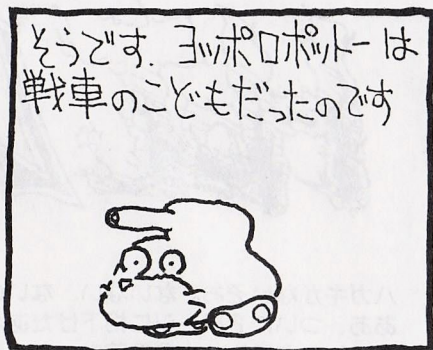 そうです. ヨッポロポットーは
戦車のこどもだったのです